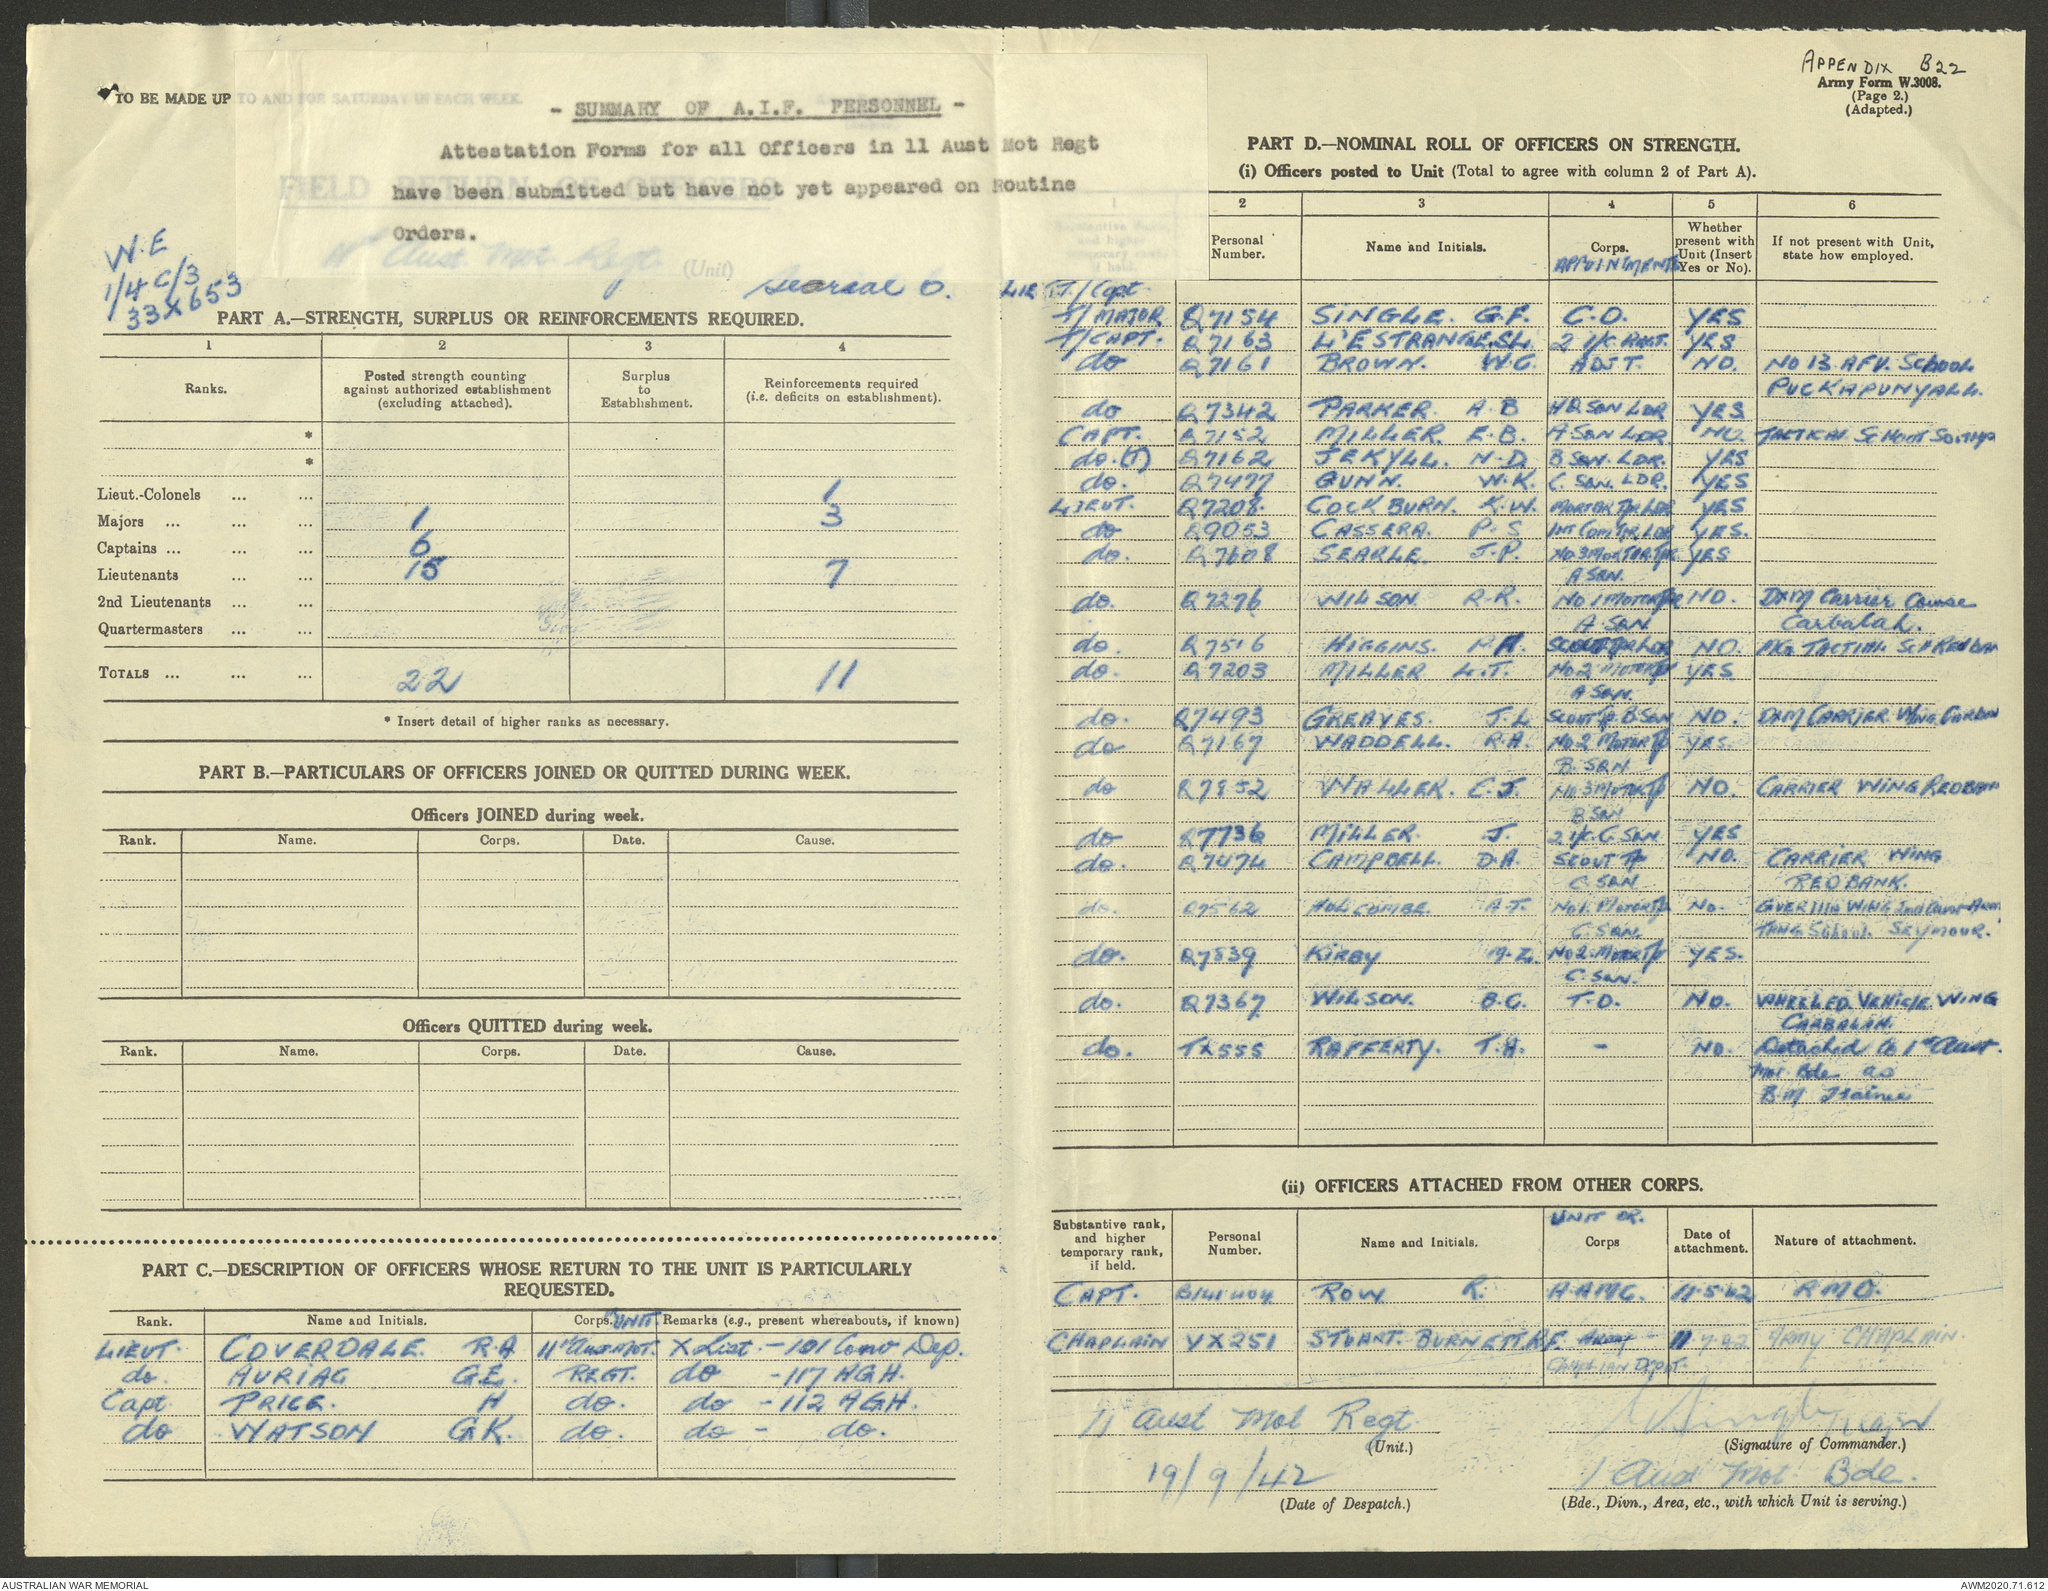 APPENDIX B22
Army Form W.3008.
(Page 2.)
(Adapted.)
TO BE MADE UP TO AND FOR SATURDAY IN EACH WEEK.
- SUMMARY OF A.I.F. PERSONNEL -
Attestation Forms for all Officers in 11 Aust Mot Regt
have been submitted but have not yet appeared on Routine
Orders.
FIELD RETURN OF OFFICERS
11th Aust Mot. Regt. (Unit)
W.E
1/4 C/3
33X653
PART A.—STRENGTH, SURPLUS OR REINFORCEMENTS REQUIRED.
1 2 3 4
Ranks. Posted strength counting against authorized establishment (excluding attached). Surplus to Establishment. Reinforcements required (i.e. deficits on establishment).
*
*
Lieut.-Colonels ... ... 1
Majors ... ... ... 1 3
Captains ... ... ... 6
Lieutenants ... ... 15 7
2nd Lieutenants ... ...
Quartermasters ... ...
TOTALS ... ... ... 22 11
* Insert detail of higher ranks as necessary.
PART B.—PARTICULARS OF OFFICERS JOINED OR QUITTED DURING WEEK.
Officers JOINED during week.
Rank. Name. Corps. Date. Cause.
Officers QUITTED during week.
Rank. Name. Corps. Date. Cause.
PART C.—DESCRIPTION OF OFFICERS WHOSE RETURN TO THE UNIT IS PARTICULARLY
REQUESTED.
Rank. Name and Initials. Corps. UNIT Remarks (e.g., present whereabouts, if known)
LIEUT. COVERDALE. R.A 11th Aust MOT. X List. - 101 Conv Dep.
do. AURIAC G.E. REGT. do - 117 AGH.
Capt PRICE. H do. do - 112 AGH.
do WATSON G.K. do. do - do.
PART D.—NOMINAL ROLL OF OFFICERS ON STRENGTH.
(i) Officers posted to Unit (Total to agree with column 2 of Part A).
1 2 3 4 5 6
Substantive rank, and higher temporary rank, if held. Personal Number. Name and Initials. Corps. APPOINTMENTS Whether present with Unit (Insert Yes or No). If not present with Unit, state how employed.
LIEUT. T/Capt.
T/MAJOR Q7154 SINGLE. G.F. C.O. YES
T/CAPT. Q7163 L'ESTRANGE. S.L. 2 I/C REGT. YES
do Q7161 BROWN. W.G. ADJT. NO. NO 13 AFV. SCHOOL
PUCKAPUNYALL.
do Q7342 PARKER. A.B HQ SQN LDR YES
CAPT. Q7152 MILLER. E.B. A SQN LDR. NO. TACTICAL SCHOOL
do. (T) Q7162 JEKYLL. N.D. B SQN. LDR. YES
do. Q7477 GUNN. W.K. C. SQN. LDR. YES
LIEUT. Q7208. COCKBURN. K.W. MORTAR TPR LDR YES
do Q9053 CASSERA. P.S INT COM TPR LDR YES.
do. Q7608 SEARLE. J.P. NO. 3 MOTOR TPR. YES
A SQN.
do. Q7276 WILSON R.R. NO 1 MOTOR TP NO. D&M Carrier Course
A SQN. Carbalah.
do. Q7516 HIGGINS. SCOUT TPR LDR NO. TACTICAL SCH REDBAN
do. Q7203 MILLER L.T. NO 2 MOTOR TP YES
A SQN.
do. Q7493 GREAVES. J.L SCOUT TP. B SQN NO. D&M CARRIER WING
do Q7167 WADDELL. R.A. NO 2 MOTOR TP YES.
B. SQN
do Q7852 WALLER. C.J. NO 3 MOTOR TP NO. CARRIER WING REDBANK
B SQN
do Q7736 MILLER J. 2 I/C. C. SQN YES
do. Q7474 CAMPBELL. D.A. SCOUT TP NO. CARRIER WING
C. SQN REDBANK.
do. Q7562 HOLCOMBE. A.T. NO 1. MOTOR TP NO. GUERILLA WING
C SQN. School. SEYMOUR.
do. Q7839 KIRBY NO 2. MOTOR TP YES.
C. SQN.
do. Q7367 WILSON. B.C. T.O. NO. WHEELED VEHICLE WING
CARBALAH.
do. TX555 RAFFERTY. T.A. - NO. Detached to 1st Aust.
Mot Bde as
B.M Trainee
(ii) OFFICERS ATTACHED FROM OTHER CORPS.
Substantive rank, and higher temporary rank, if held. Personal Number. Name and Initials. UNIT OR. Corps Date of attachment. Nature of attachment.
CAPT. ROW R. A.A.M.C. 11.5.42 R.M.O.
CHAPLAIN VX251 STUART. BURNETT. R.F. 11.7.42 ARMY CHAPLAIN.
11 Aust Mot Regt
(Unit.)
(Signature of Commander.)
19/9/42
(Date of Despatch.)
1 Aust Mot. Bde.
(Bde., Divn., Area, etc., with which Unit is serving.)
AUSTRALIAN WAR MEMORIAL
AWM2020.71.612